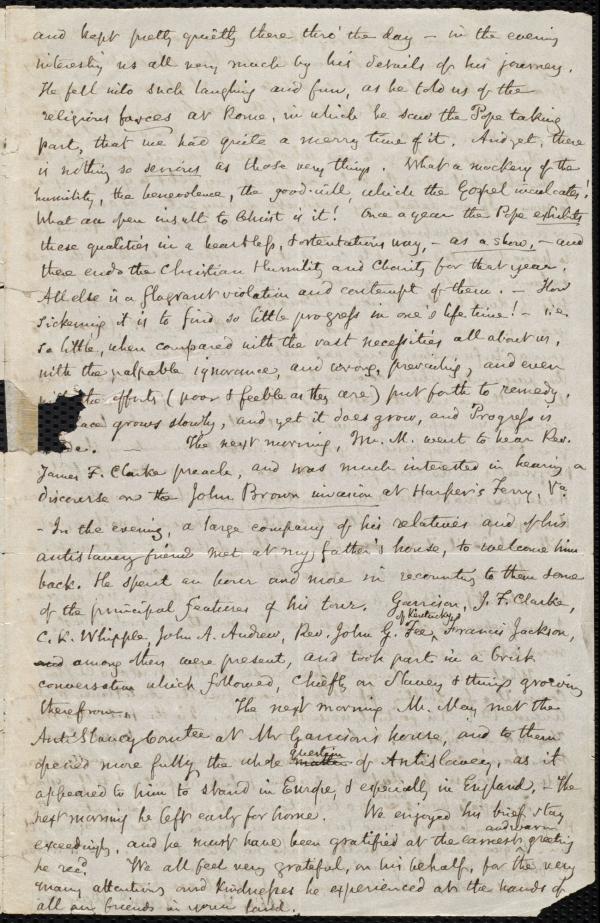 and kept pretty quietly there thro' the day – in the evening
interesting us all very much by his details of his journey.
He fell into such laughing and fun, as he told us of the
religious farces at Rome, in which he saw the Pope taking
part, that we had quite a merry time of it. And yet, there
is nothing so serious as those very things. What a mockery of the
humility, the benevolence, the good-will, which the Gospel inculcates!
What an open insult to Christ is it! Once a year the Pope exhibits
these qualities in a heartless, & ostentatious way, – as a show, – and
there ends the Christian Humility and Charity for that year.
All else is a flagrant violation and contempt of them. – How
sickening it is to find so little progress in one's life time! – i.e.
so little, when compared with the vast necessities all about us,
with the palpable ignorance, and wrong, prevailing, and even
the efforts (poor & feeble as they are) put forth to remedy.
grows slowly, and yet it does grow, and Progress is
– The next morning, Mr. M. went to hear Rev.
James F. Clarke preach, and was much interested in hearing a
discourse on the John Brown invasion at Harper's Ferry, Va.
– In the evening, a large company of his relatives and of his
antislavery friends met at my father's house, to welcome him
back. He spent an hour and more in recounting to them some
of the principal features of his tour. Garrison, J. F. Clarke,
C. K. Whipple, John A. Andrew, Rev. John G. Fee, of Kentucky, Francis Jackson,
and among others were present, and took part in a brisk
conversation which followed, chiefly on Slavery & things growing
therefrom. The next morning Mr. May met the
AntiSlavery Comtee at Mr Garrison's house, and to them
opened more fully the whole matter question of Antislavery, as it
appeared to him to stand in Europe, & especially in England. – The
next morning he left early for home. We enjoyed his brief stay
exceedingly, and he must have been gratified at the earnest and warm greeting
he recd. We all feel very grateful, on his behalf, for the very
many attentions and kindnesses he experienced at the hands of
all our friends in your land.